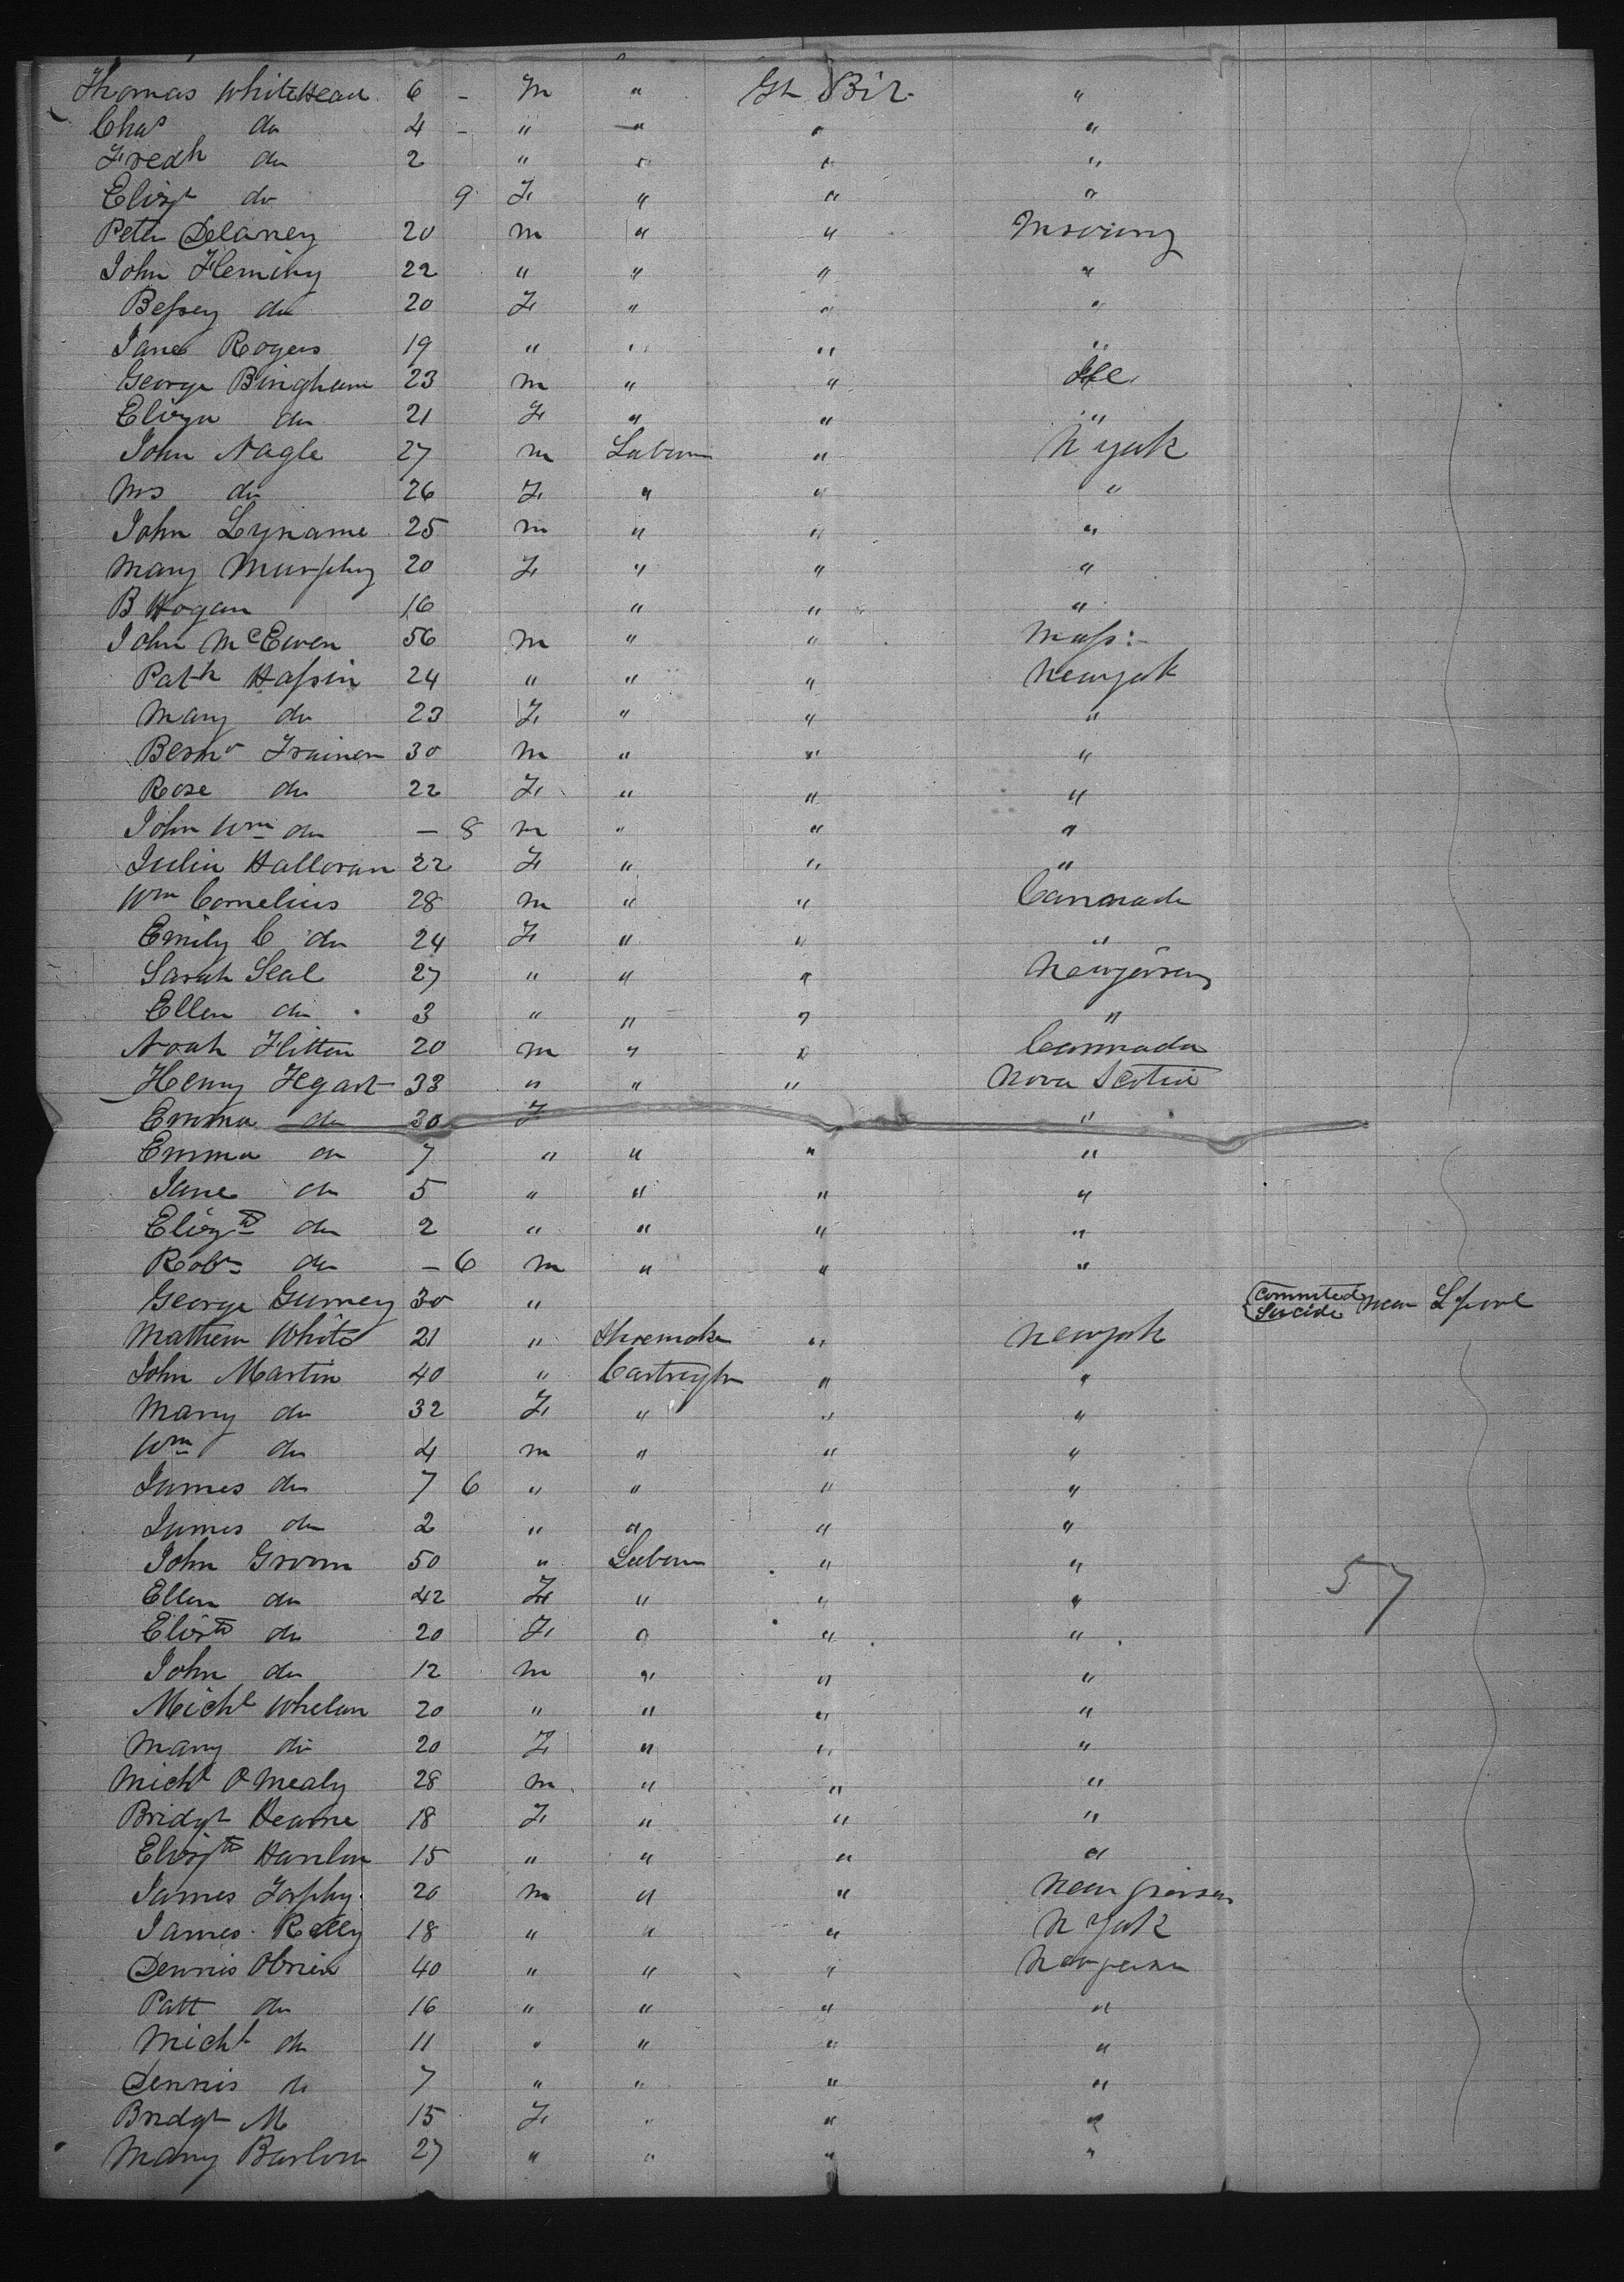 Thomas WhiteHead 6 - M " Gt Bir "
Chas do 4 - " " " "
Fredk do 2 " " " "
Elizt do 9 F " " "
Peter Delaney 20 m " " Msouiry
John Fleming 22 " " " "
Bessey do 20 F " " "
Jane Rogers 19 " " " "
George Bingham 23 m " "
Eliza do 21 F " " "
John Nagle 27 m Labour " N York
Mrs do 26 F " " "
John Lyname 25 m " " "
Mary Murphy 20 F " " "
B Hogan 16 " " "
John McEwen 56 m " " Mass:-
Patk Hassin 24 " " " Newyork
Mary do 23 F " " "
Bernd Trainer 30 m " " "
Rose do 22 F " " "
John Wm do - 8 m " " "
Julia Halloran 22 F " " "
Wm Cornelius 28 m " " Cannada
Emily C do 24 F " " "
Sarah Seal 27 " " " Newjersey
Ellen do 3 " " " "
Noah Flitton 20 m " " Cannada
Henry Hegart 33 " " " Nova Scotia
Emma do 30 F "
Emma do 7 " " " "
Jane do 5 " " " "
Elizth do 2 " " " "
Robt do - 6 m " " "
George Gurney 30 " Commited Suicide near Lpool
Mathew White 21 " Shoemaker " Newyork
John Martin 40 " Cartright " "
Mary do 32 F " " "
Wm do 4 m " " "
James do 7 6 " " " "
James do 2 " " " "
John Groom 50 " Labour " " 57
Ellen do 42 F " " "
Elizth do 20 F " " "
John do 12 m " " "
Michl Whelan 20 " " " "
Mary do 20 F " " "
Michl O Mealy 28 m " " "
Bridgt Hearne 18 F " " "
Elizth Hanlon 15 " " " "
James Torphy 20 m " " New
James Reily 18 " " " N York
Dennis Obrien 40 " " "
Patt do 16 " " " "
Michl do 11 " " " "
Dennis do 7 " " " "
Bridgt M 15 F " " "
Mary Barlow 27 " " " "